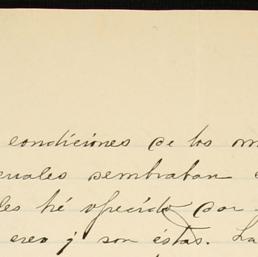 condiciones de los m
cuales sembraban
les hé ofrecido por
creo y son éstas. La